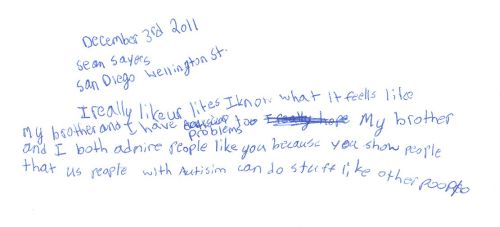 December 3rd 2011
sean sayers
san Diego wellington st.
I really like ur lites I know what it feels like
My brother and I have problems too My brother
and I both admire people like you because you show people
that us people with Autisim can do stuff like other poople